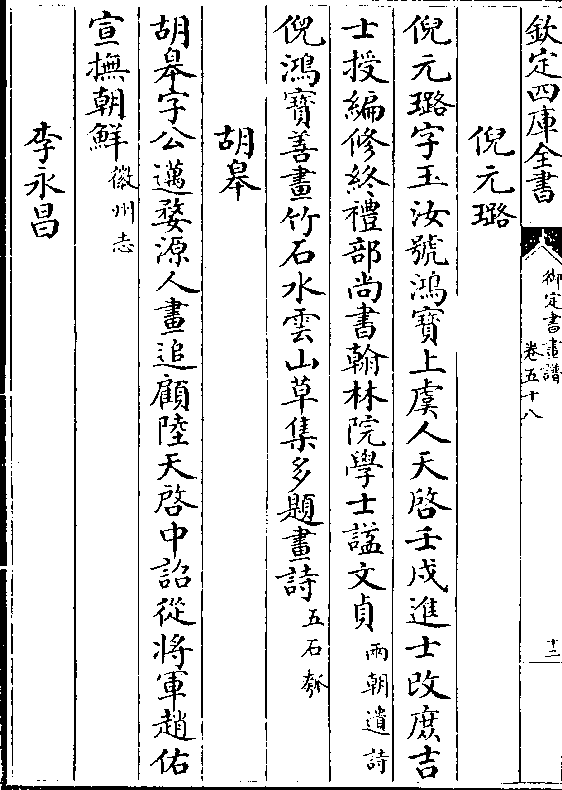 欽定四庫全書
御定書畫譜
卷五十八
十二
倪元璐
倪元璐字玉汝號鴻寶上虞人天啓壬戌進士改庶吉
士授編修終禮部尚書翰林院學士諡文貞兩朝遺詩
倪鴻寶善畫竹石水雲山草集多題畫詩五石瓠
胡皋
胡皋字公邁婺源人畫追顧陸天啓中詔從將軍趙佑
宣撫朝鮮徽州志
李永昌